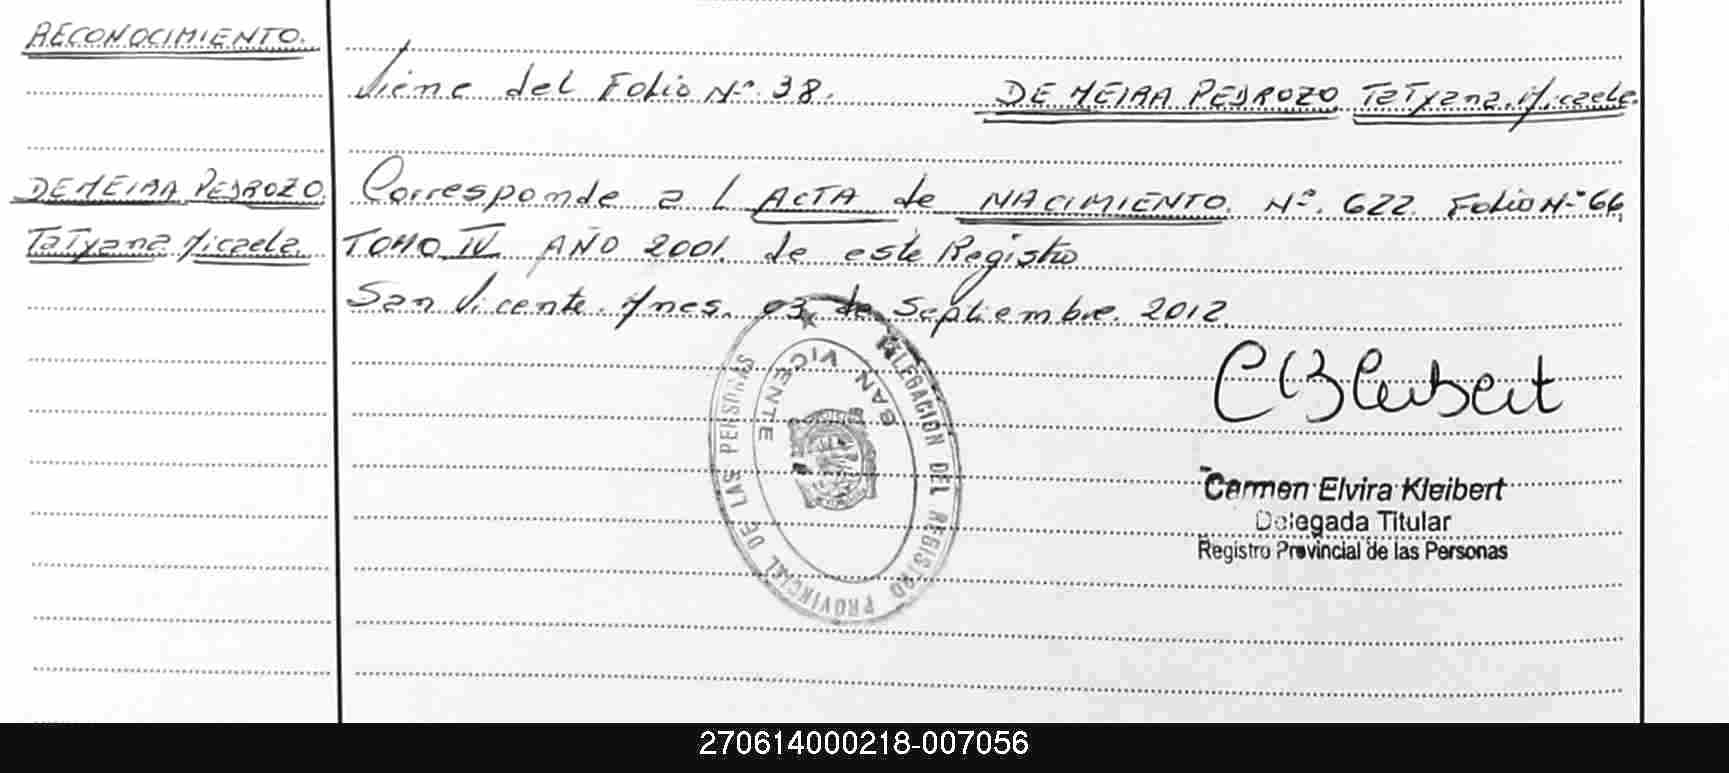 RECONOCIMIENTO.
Viene del Folio Nº 38. DE MEIRA PEDROZO Tatyana Micaela.
DE MEIRA PEDROZO
Tatyana Micaela.
Corresponde al ACTA de NACIMIENTO Nº. 622. Folio Nº 66
TOMO IV AÑO 2001. de este Registro
San Vicente. Mnes. 03 de Septiembre. 2012.
DELEGACION DEL REGISTRO PROVINCIAL DE LAS PERSONAS
SAN VICENTE
Carmen Elvira Kleibert
Delegada Titular
Registro Provincial de las Personas
270614000218-007056